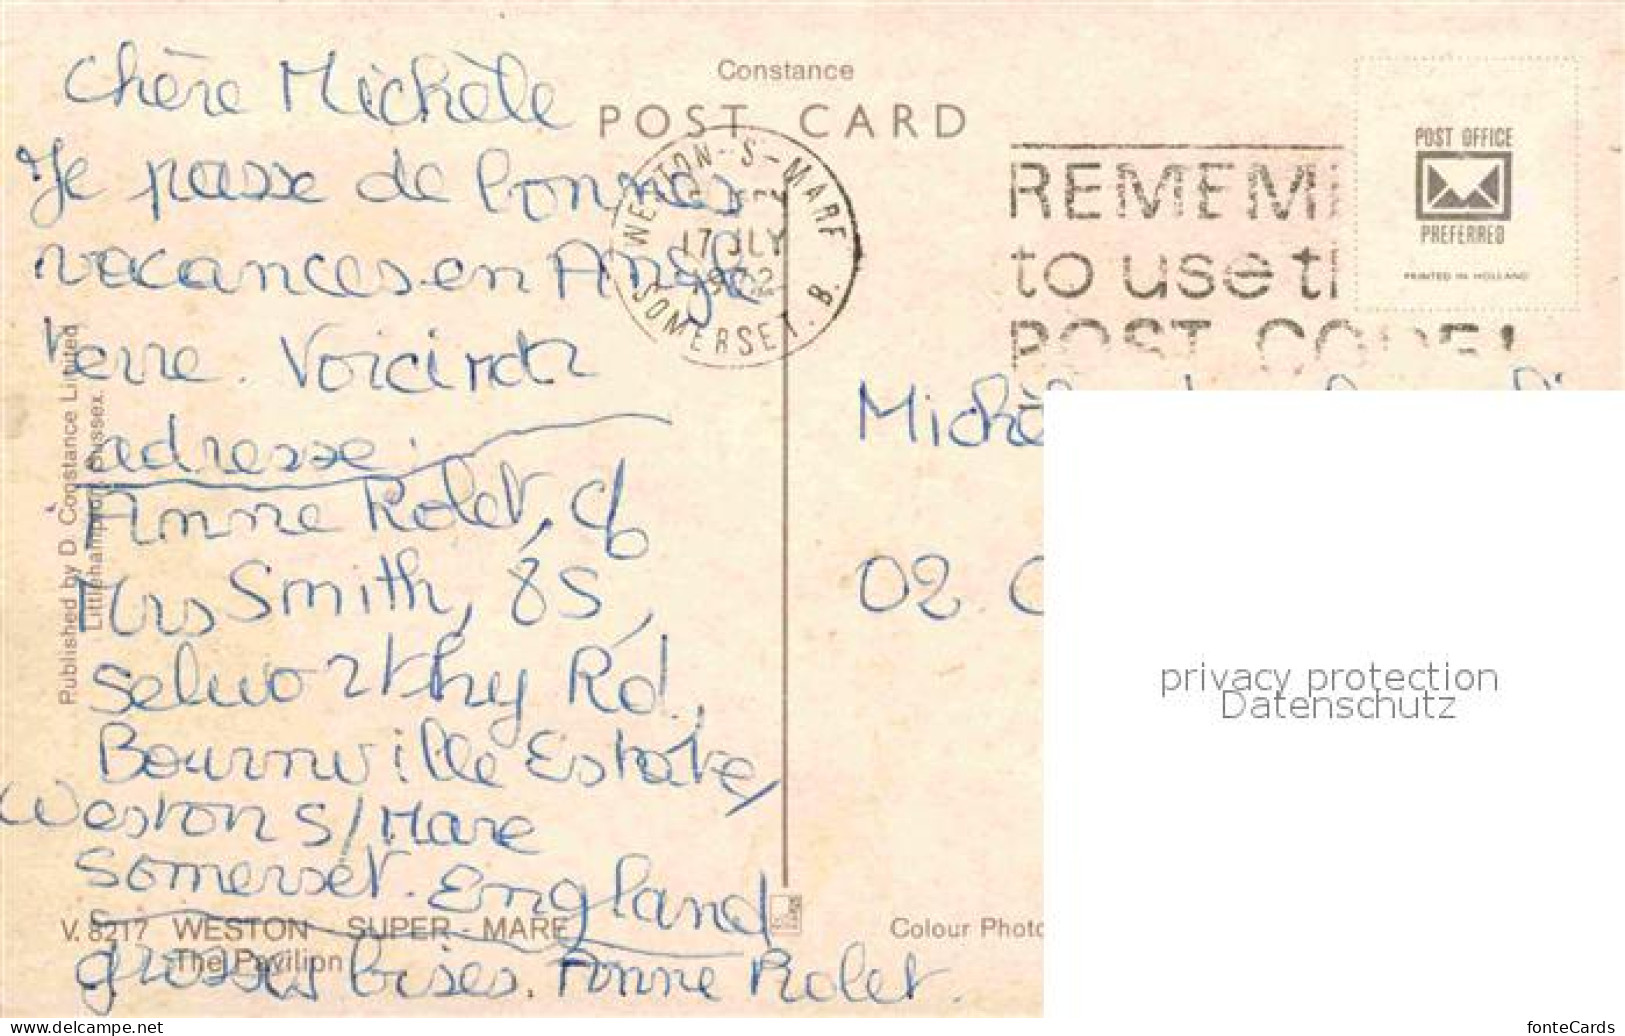 Constance
POST CARD
Chère Michèle
Je passe de bonnes
vacances en Angle
terre. Voici mon
adresse:
Anne Rolet, c/o
Mrs Smith, 85,
Selworthy Rd,
Bournville Estate,
Weston s/Mare
Somerset. England
grosses bises. Anne Rolet.
WESTON-S-MARE
17 JLY
SOMERSET. B.
REMEM
to use t
POST CODE!
POST OFFICE
PREFERRED
PRINTED IN HOLLAND
Michè
02
privacy protection
Datenschutz
Published by D. Constance Limited
Littlehampton, Sussex.
V. 8217 WESTON - SUPER - MARE
The Pavilion
Colour Photo
delcampe.net
fonteCards